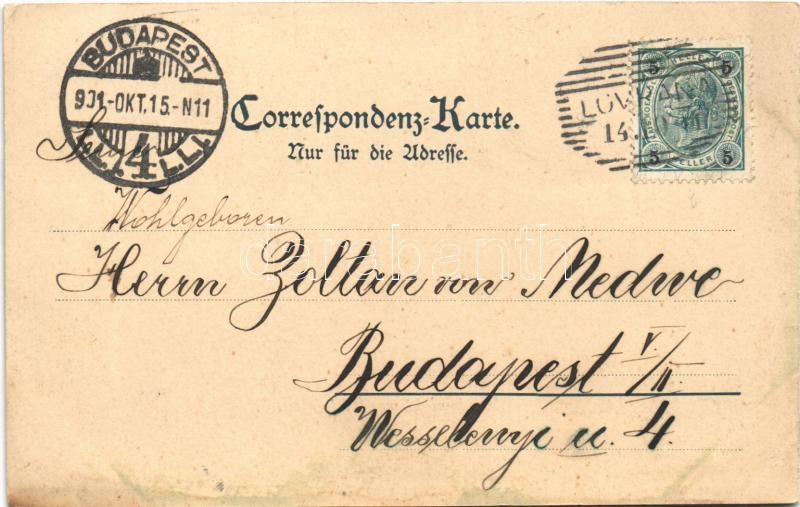 BUDAPEST
901-OKT.15-N11
4
Correspondenz-Karte.
Nur für die Adresse.
5 5
5 HELLER 5
14.
Wohlgeboren
Herrn Zoltan von Medwe
Budapest V/II
Wesselenyi u. 4.
darabanth